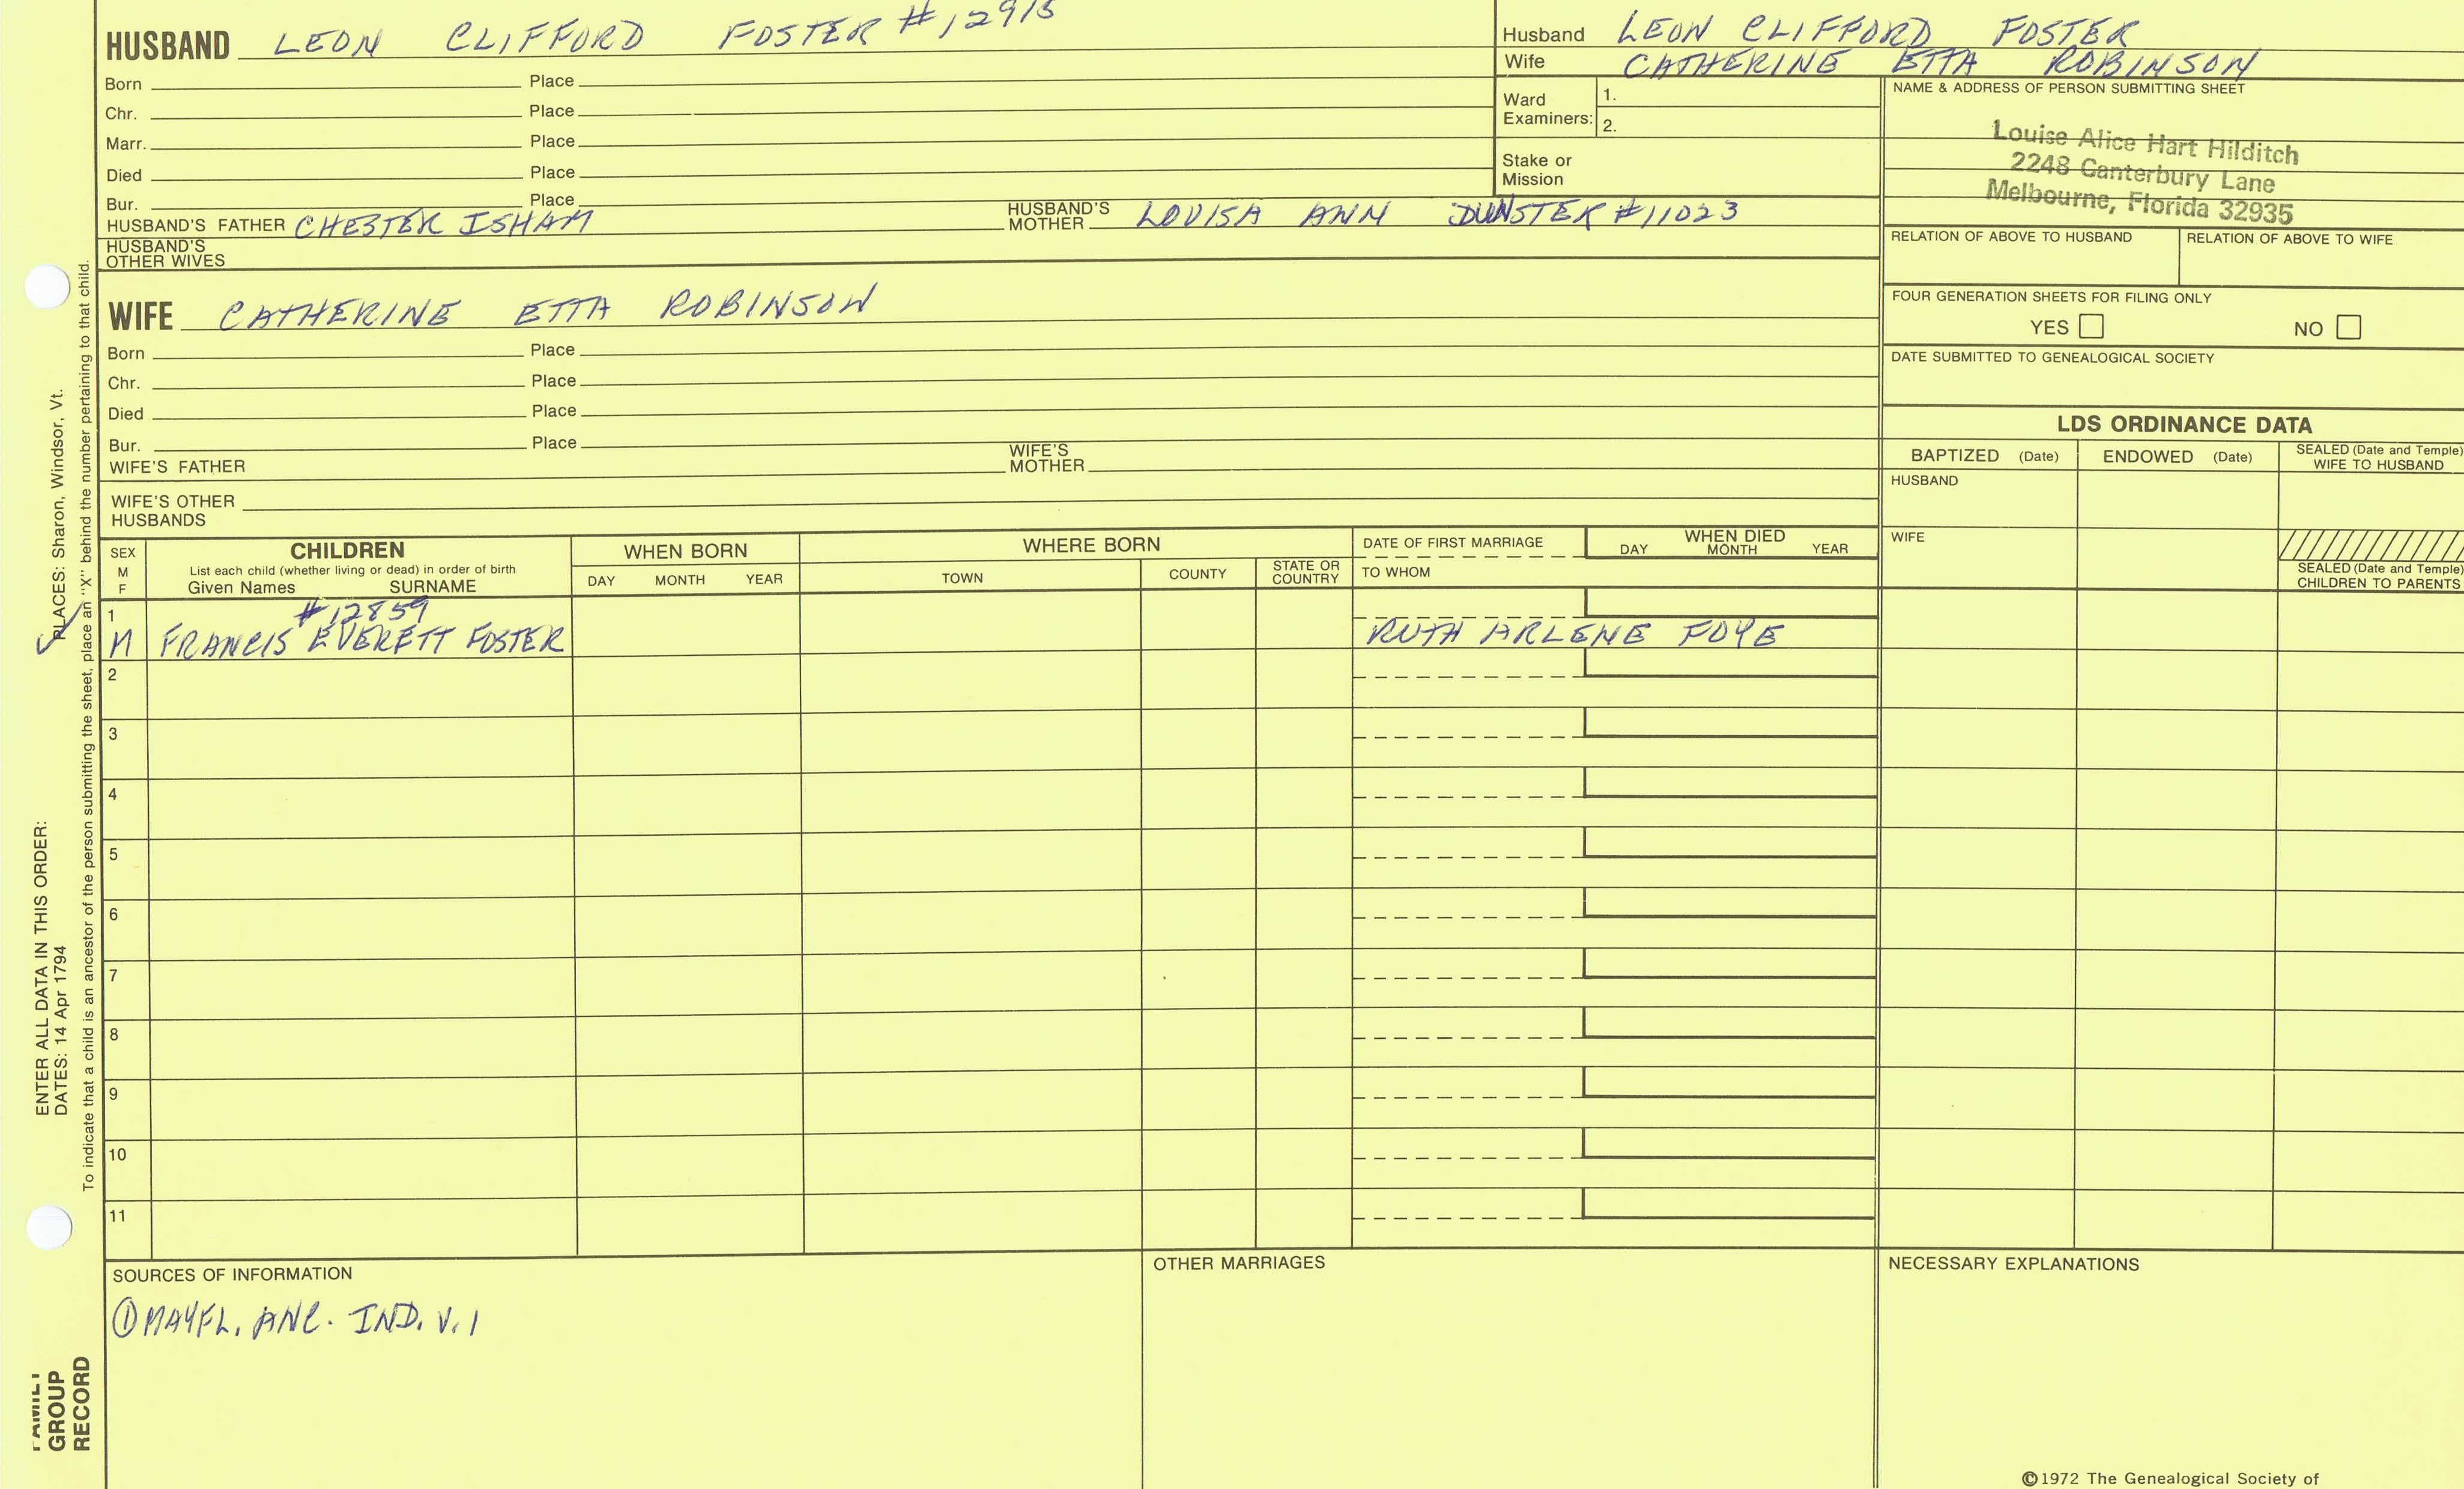 HUSBAND LEON CLIFFORD FOSTER #12915
Born Place
Chr. Place
Marr. Place
Died Place
Bur. Place
HUSBAND'S FATHER CHESTER ISHAM HUSBAND'S MOTHER LOUISA ANN DUNSTER #11023
HUSBAND'S OTHER WIVES
WIFE CATHERINE ETTA ROBINSON
Born Place
Chr. Place
Died Place
Bur. Place
WIFE'S FATHER WIFE'S MOTHER
WIFE'S OTHER HUSBANDS
Husband LEON CLIFFORD FOSTER
Wife CATHERINE ETTA ROBINSON
Ward Examiners: 1.
2.
Stake or Mission
NAME & ADDRESS OF PERSON SUBMITTING SHEET
Louise Alice Hart Hilditch
2248 Canterbury Lane
Melbourne, Florida 32935
RELATION OF ABOVE TO HUSBAND RELATION OF ABOVE TO WIFE
FOUR GENERATION SHEETS FOR FILING ONLY
YES NO
DATE SUBMITTED TO GENEALOGICAL SOCIETY
LDS ORDINANCE DATA
BAPTIZED (Date) ENDOWED (Date) SEALED (Date and Temple) WIFE TO HUSBAND
HUSBAND
WIFE
SEALED (Date and Temple) CHILDREN TO PARENTS
SEX M F
CHILDREN
List each child (whether living or dead) in order of birth
Given Names SURNAME
WHEN BORN
DAY MONTH YEAR
WHERE BORN
TOWN COUNTY STATE OR COUNTRY
DATE OF FIRST MARRIAGE
TO WHOM
WHEN DIED
DAY MONTH YEAR
1 #12859
M FRANCIS EVERETT FOSTER RUTH ARLENE FOYE
2
3
4
5
6
7
8
9
10
11
SOURCES OF INFORMATION
① MAYFL. ANC. IND. V. 1
OTHER MARRIAGES
NECESSARY EXPLANATIONS
©1972 The Genealogical Society of
ENTER ALL DATA IN THIS ORDER:
DATES: 14 Apr 1794 PLACES: Sharon, Windsor, Vt.
To indicate that a child is an ancestor of the person submitting the sheet, place an "X" behind the number pertaining to that child.
FAMILY
GROUP
RECORD